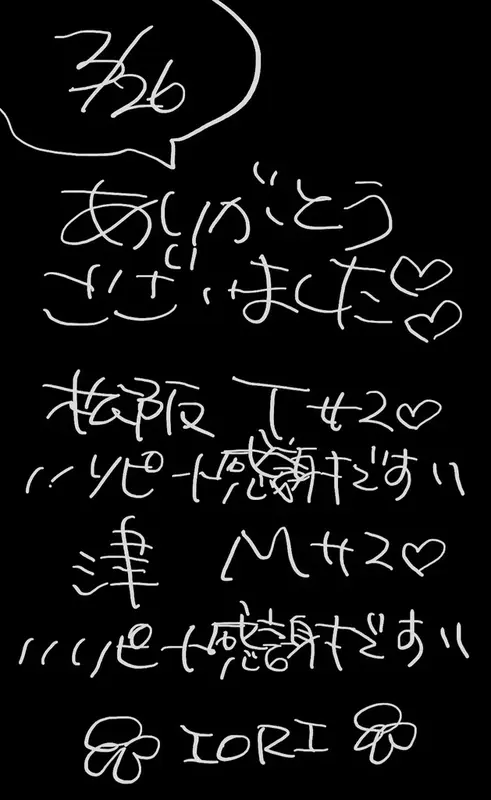 2/26
ありがとう
ございました♡♡
松阪 Tサン♡
\\リピート感謝です\\
津 Mサン♡
\\リピート感謝です\\
IORI